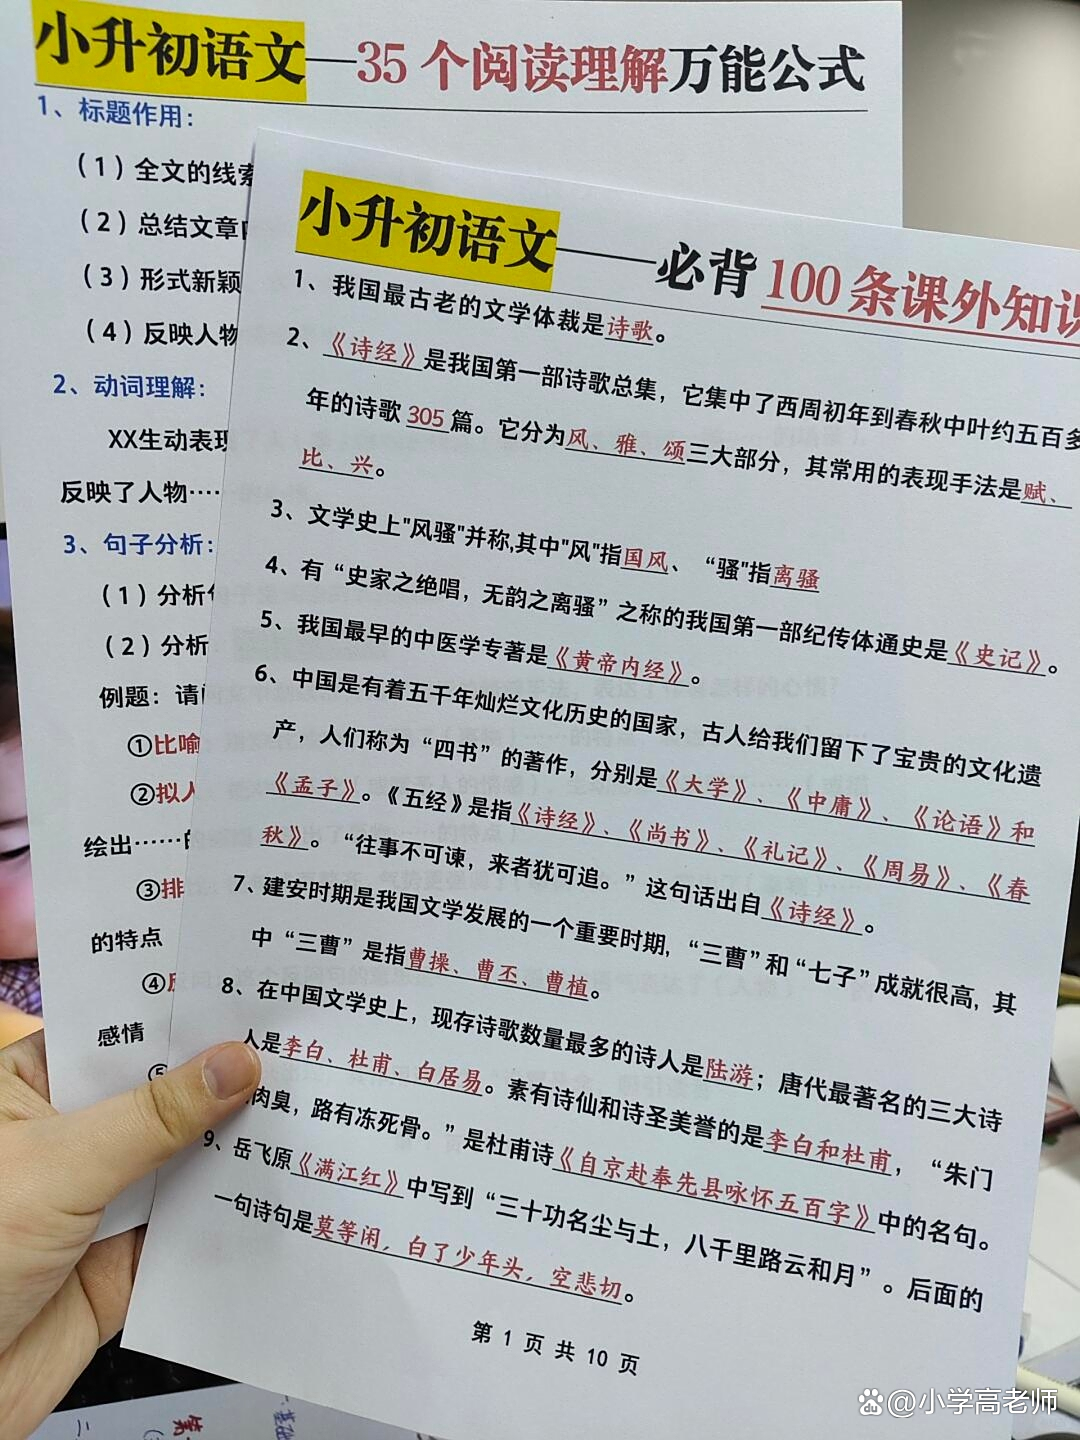 小升初语文—35个阅读理解万能公式
1、标题作用：
（1）全文的线索
（2）总结文章
（3）形式新颖
（4）反映人物
2、动词理解：
XX生动表现
反映了人物……
3、句子分析：
（1）分析
（2）分析
例题：请
①比喻
②拟人
绘出……的
③排
的特点
④反
感情
⑤
小升初语文——必背100条课外知识
1、我国最古老的文学体裁是诗歌。
2、《诗经》是我国第一部诗歌总集，它集中了西周初年到春秋中叶约五百多
年的诗歌305篇。它分为风、雅、颂三大部分，其常用的表现手法是赋、
比、兴。
3、文学史上"风骚"并称,其中"风"指国风、“骚"指离骚
4、有“史家之绝唱，无韵之离骚”之称的我国第一部纪传体通史是《史记》。
5、我国最早的中医学专著是《黄帝内经》。
6、中国是有着五千年灿烂文化历史的国家，古人给我们留下了宝贵的文化遗
产，人们称为“四书”的著作，分别是《大学》、《中庸》、《论语》和
《孟子》。《五经》是指《诗经》、《尚书》、《礼记》、《周易》、《春
秋》。“往事不可谏，来者犹可追。”这句话出自《诗经》。
7、建安时期是我国文学发展的一个重要时期，“三曹”和“七子”成就很高，其
中“三曹”是指曹操、曹丕、曹植。
8、在中国文学史上，现存诗歌数量最多的诗人是陆游；唐代最著名的三大诗
人是李白、杜甫、白居易。素有诗仙和诗圣美誉的是李白和杜甫，“朱门
肉臭，路有冻死骨。”是杜甫诗《自京赴奉先县咏怀五百字》中的名句。
9、岳飞原《满江红》中写到“三十功名尘与土，八千里路云和月”。后面的
一句诗句是莫等闲，白了少年头，空悲切。
第 1 页 共 10 页
@小学高老师